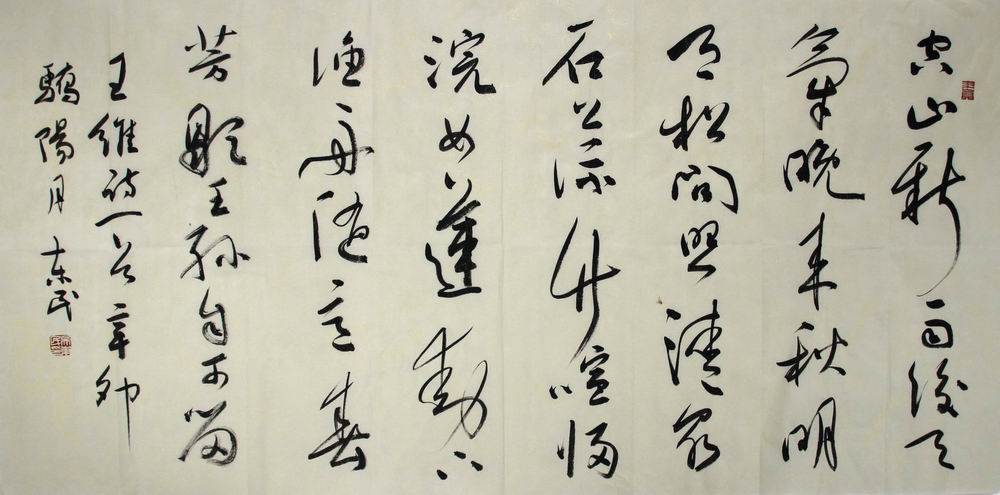 空山新雨後天
氣晚來秋明
月松間照清泉
石上流竹喧歸
浣女蓮動下
漁舟隨意春
芳歇王孫自可留
王維詩一首辛卯
驕陽月東民